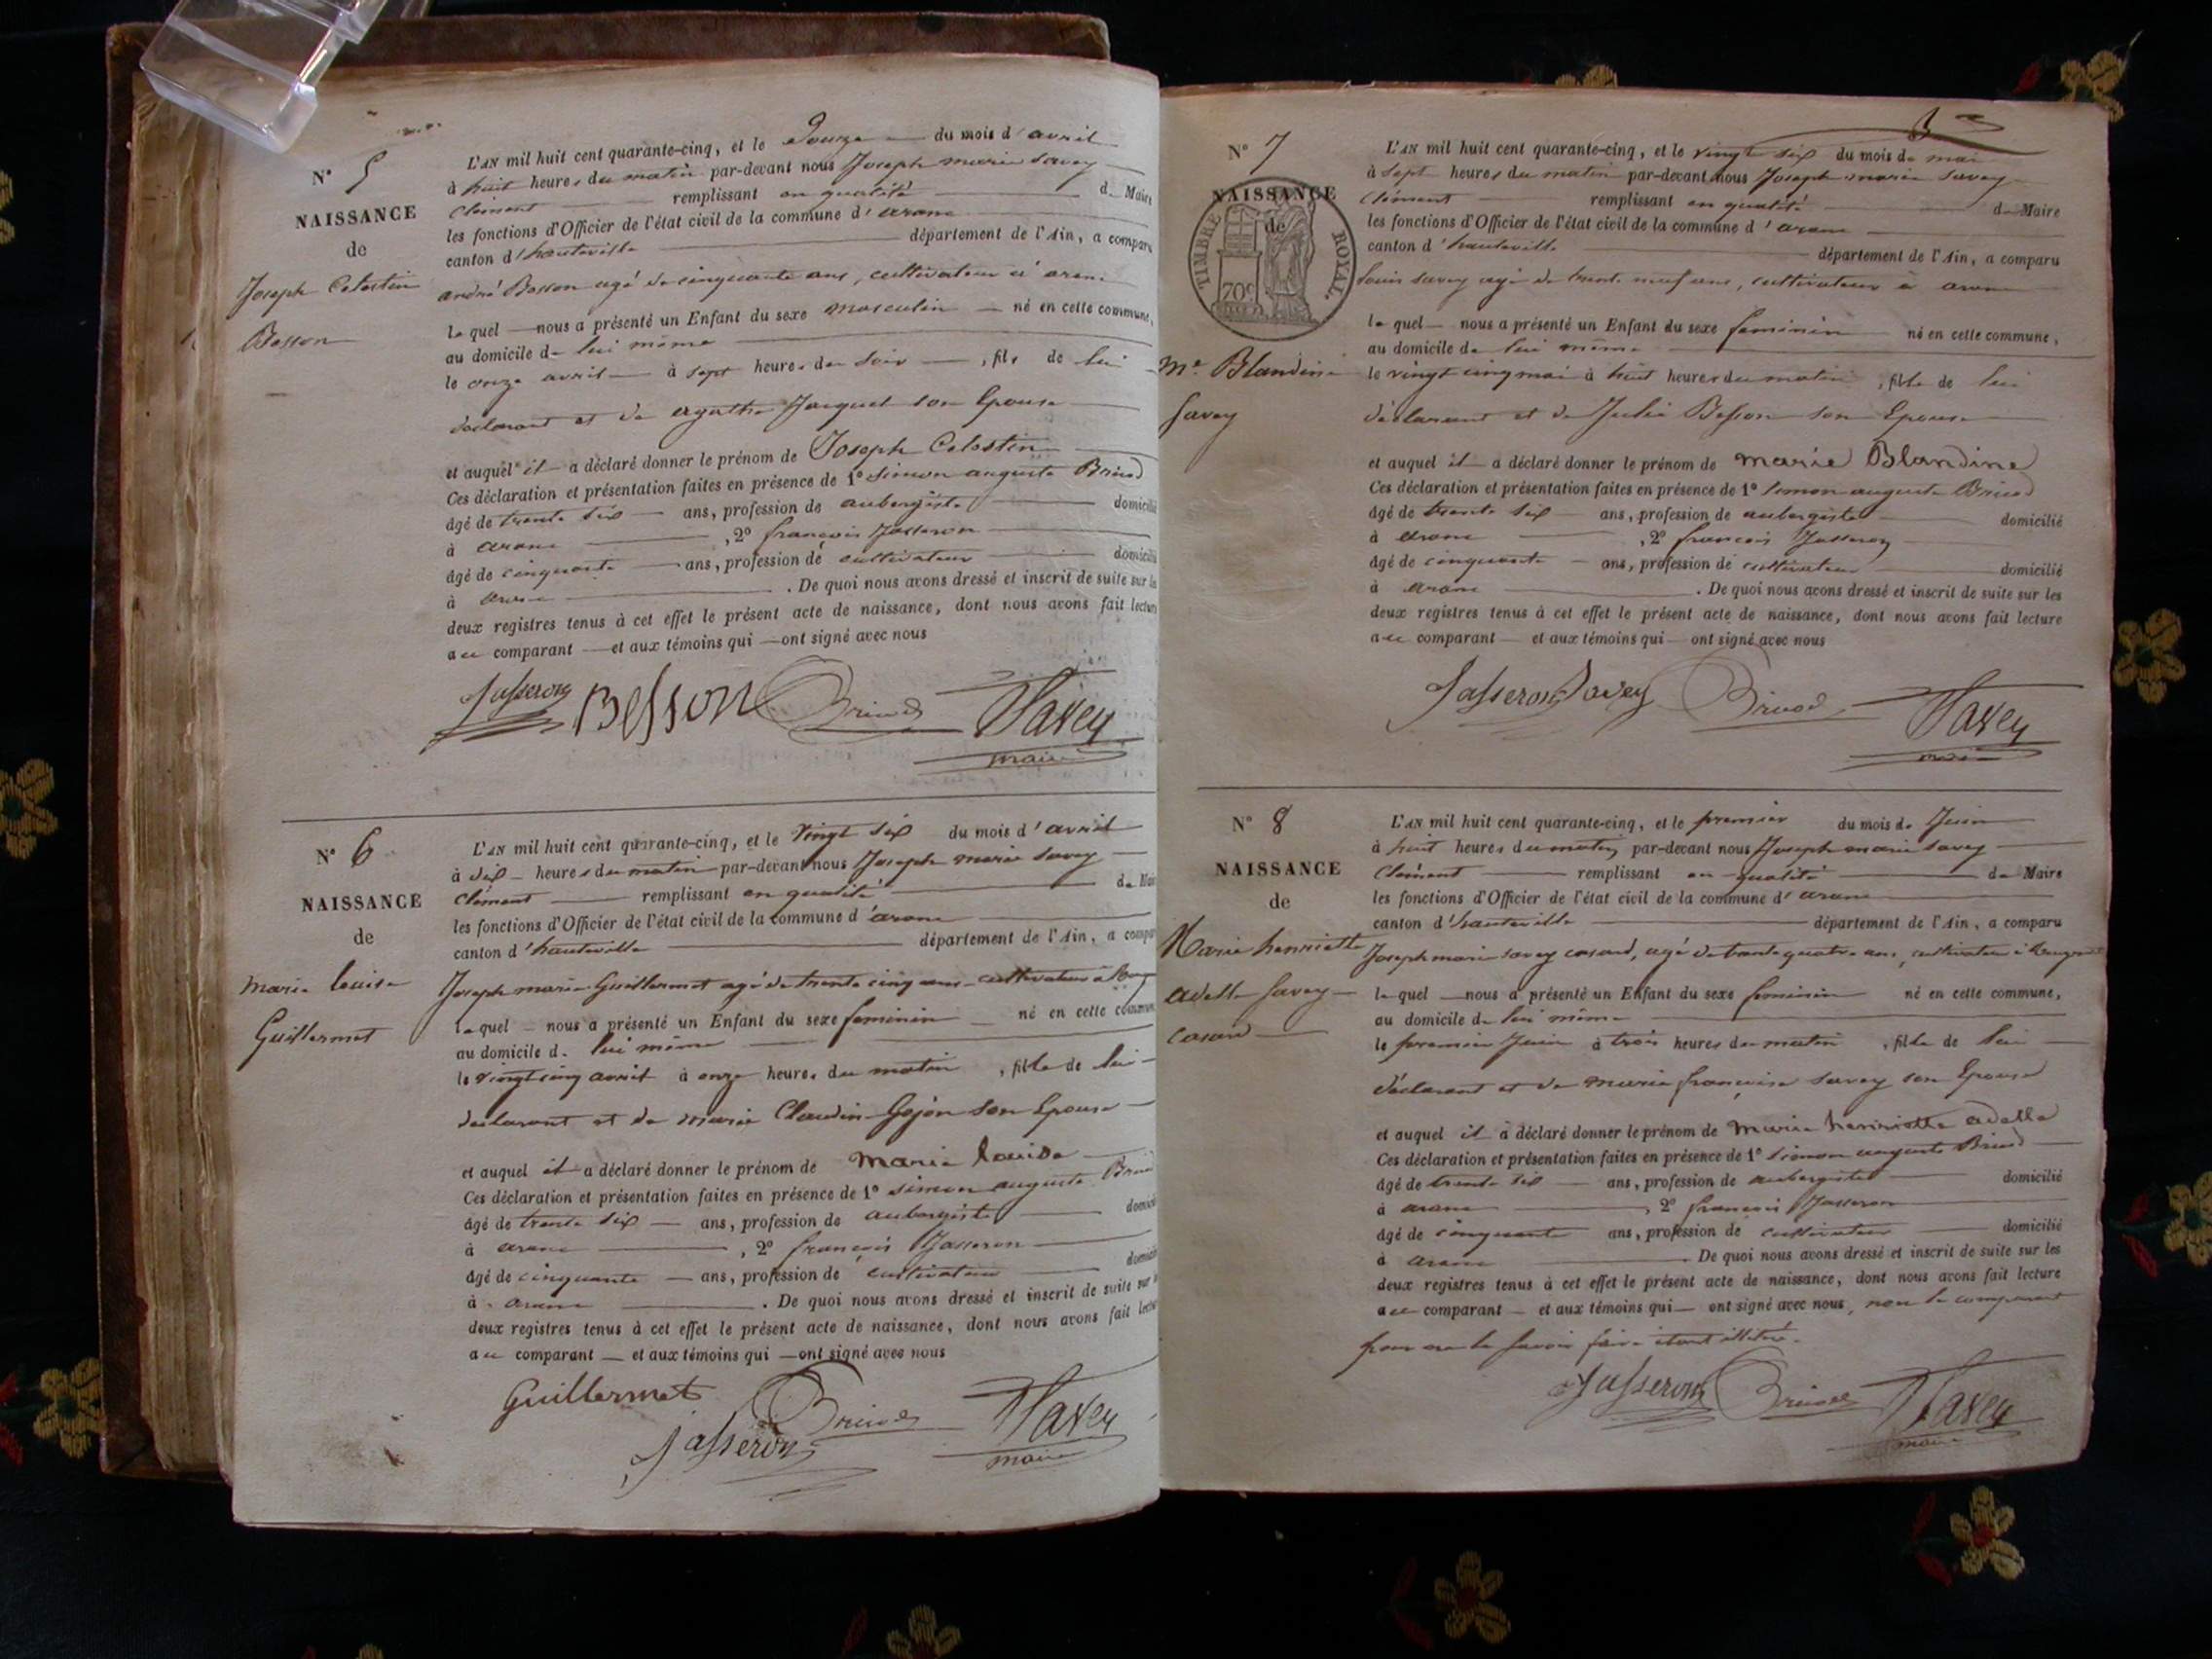 N° 5
NAISSANCE
de
Joseph Celestin
Besson
L'AN mil huit cent quarante-cinq, et le Douze du mois d'avril
à huit heures du matin par-devant nous Joseph marie Savey
Clément remplissant en qualité de Maire
les fonctions d'Officier de l'état civil de la commune d'aranc
canton d'hauteville département de l'Ain, a comparu
andré Besson agé de cinquante ans, cultivateur à aranc
lequel nous a présenté un Enfant du sexe masculin né en cette commune,
au domicile de lui même
le onze avril à sept heures du soir, fils de lui
déclarant et de agathe Jacquet son Epouse
et auquel il a déclaré donner le prénom de Joseph Celestin
Ces déclaration et présentation faites en présence de 1° Simon auguste Brucod
âgé de trente six ans, profession de aubergiste domicilié
à aranc, 2° françois Jasseron
âgé de cinquante ans, profession de cultivateur domicilié
à aranc. De quoi nous avons dressé et inscrit de suite sur les
deux registres tenus à cet effet le présent acte de naissance, dont nous avons fait lecture
au comparant et aux témoins qui ont signé avec nous
Jasseron Besson Savey
maire
N° 6
NAISSANCE
de
marie louise
Guillermet
L'AN mil huit cent quarante-cinq, et le Vingt six du mois d'avril
à dix heures du matin par-devant nous Joseph marie Savey
Clément remplissant en qualité de Maire
les fonctions d'Officier de l'état civil de la commune d'aranc
canton d'hauteville département de l'Ain, a compar
Joseph marie Guillermet agé de trente cinq ans cultivateur à
lequel nous a présenté un Enfant du sexe feminin né en cette commune
au domicile de lui même
le vingt cinq avril à onze heures du matin, fille de lui
declarant et de marie Claudin Gojon son Epouse
et auquel il a déclaré donner le prénom de Marie louise
Ces déclaration et présentation faites en présence de 1° simon auguste
âgé de trente six ans, profession de aubergiste domicilié
à aranc, 2° françois Jasseron
âgé de cinquante ans, profession de cultivateur domicilié
à aranc. De quoi nous avons dressé et inscrit de suite sur
deux registres tenus à cet effet le présent acte de naissance, dont nous avons fait lecture
au comparant et aux témoins qui ont signé avec nous
Guillermet Savey
Jasseron maire
N° 7
NAISSANCE
de
TIMBRE ROYAL.
70c
Me Blandine
Savey
L'AN mil huit cent quarante-cinq, et le vingt six du mois de mai
à sept heures du matin par-devant nous Joseph marie Savey
Clément remplissant en qualité de Maire
les fonctions d'Officier de l'état civil de la commune d'aranc
canton d'hauteville département de l'Ain, a comparu
Louis Savey agé de trente neuf ans, cultivateur à aranc
lequel nous a présenté un Enfant du sexe feminin né en cette commune,
au domicile de lui même
le vingt cinq mai à huit heures du matin, fille de lui
déclarant et de Julie Besson son Epouse
et auquel il a déclaré donner le prénom de marie Blandine
Ces déclaration et présentation faites en présence de 1° Simon auguste
âgé de trente six ans, profession de aubergiste domicilié
à aranc, 2° françois Jasseron
âgé de cinquante ans, profession de cultivateur domicilié
à aranc. De quoi nous avons dressé et inscrit de suite sur les
deux registres tenus à cet effet le présent acte de naissance, dont nous avons fait lecture
au comparant et aux témoins qui ont signé avec nous
Jasseron Savey Savey
maire
N° 8
NAISSANCE
de
Marie henriette
adelle Savey
casard
L'AN mil huit cent quarante-cinq, et le premier du mois de Juin
à huit heures du matin par-devant nous Joseph marie Savey
Clément remplissant en qualité de Maire
les fonctions d'Officier de l'état civil de la commune d'aranc
canton d'hauteville département de l'Ain, a comparu
Joseph marie Savey casard, agé de trente quatre ans, cultivateur à
lequel nous a présenté un Enfant du sexe feminin né en cette commune,
au domicile de lui même
le premier Juin à trois heures du matin, fille de lui
déclarant et de marie françoise Savey son Epouse
et auquel il a déclaré donner le prénom de Marie henriette adelle
Ces déclaration et présentation faites en présence de 1° Simon auguste
âgé de trente six ans, profession de aubergiste domicilié
à aranc, 2° françois Jasseron
âgé de cinquante ans, profession de cultivateur domicilié
à aranc. De quoi nous avons dressé et inscrit de suite sur les
deux registres tenus à cet effet le présent acte de naissance, dont nous avons fait lecture
au comparant et aux témoins qui ont signé avec nous, non le comparant
pour ne le savoir faire étant illitéré.
Jasseron Savey
maire